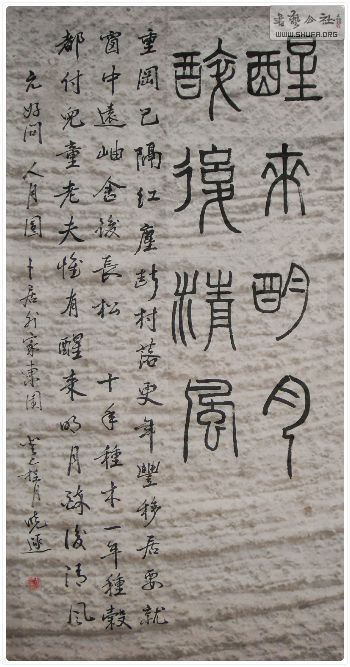 书艺公社
WWW.SHUFA.ORG
醒來明月
醉後清風
重岡已隔紅塵斷村落更年豐移居要就
窗中遠岫舍後長松十年種木一年種穀
都付兒童老夫惟有醒來明月醉後清風
元好問 人月圓 卜居外家東園 桂月